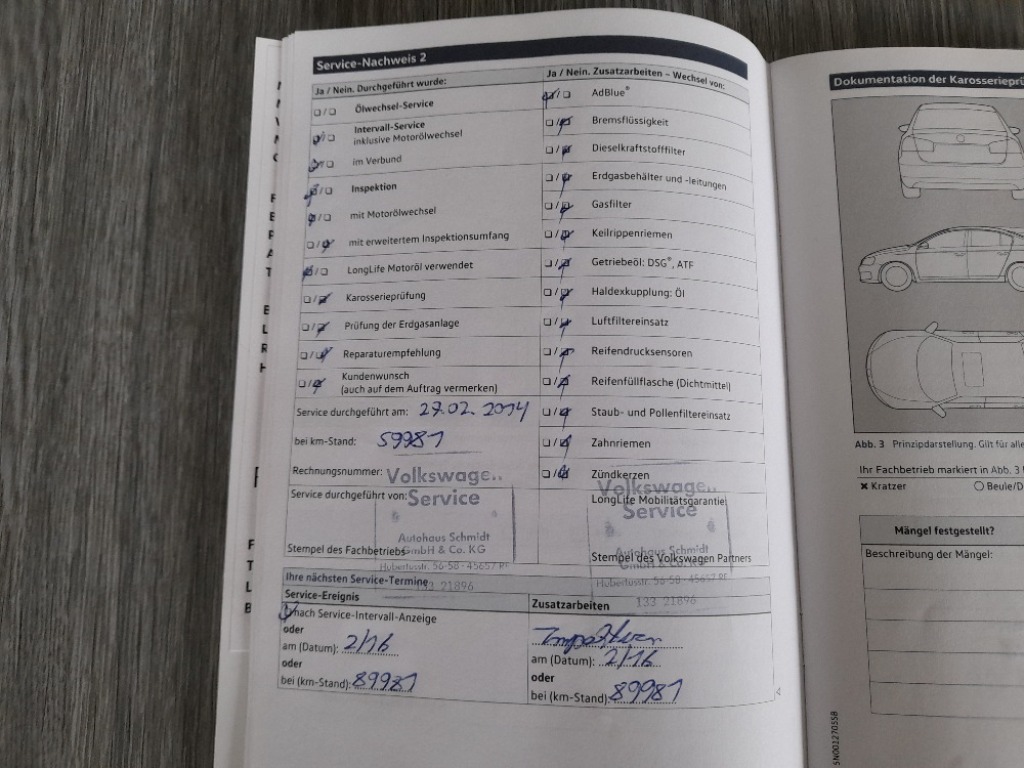 Service-Nachweis 2
Ja / Nein. Durchgeführt wurde:
Ölwechsel-Service
Intervall-Service
inklusive Motorölwechsel
im Verbund
Inspektion
mit Motorölwechsel
mit erweitertem Inspektionsumfang
LongLife Motoröl verwendet
Karosserieprüfung
Prüfung der Erdgasanlage
Reparaturempfehlung
Kundenwunsch
(auch auf dem Auftrag vermerken)
Service durchgeführt am: 27.02.2014
bei km-Stand: 59981
Rechnungsnummer:
Service durchgeführt von:
Volkswage..
Service
Autohaus Schmidt
GmbH & Co. KG
Stempel des Fachbetriebs
Hubertusstr. 56-58 - 45657 RE
133 21896
Ja / Nein. Zusatzarbeiten – Wechsel von:
AdBlue®
Bremsflüssigkeit
Dieselkraftstofffilter
Erdgasbehälter und -leitungen
Gasfilter
Keilrippenriemen
Getriebeöl: DSG®, ATF
Haldexkupplung: Öl
Luftfiltereinsatz
Reifendrucksensoren
Reifenfüllflasche (Dichtmittel)
Staub- und Pollenfiltereinsatz
Zahnriemen
Zündkerzen
Volkswage..
LongLife Mobilitätsgarantie
Service
Autohaus Schmidt
GmbH & Co. KG
Stempel des Volkswagen Partners
Hubertusstr. 56-58 - 45657 RE
133 21896
Ihre nächsten Service-Termine
Service-Ereignis
nach Service-Intervall-Anzeige
oder
am (Datum): 2/16
oder
bei (km-Stand): 89981
Zusatzarbeiten
am (Datum): 2/16
oder
bei (km-Stand): 89981
Dokumentation der Karosserieprü
Abb. 3 Prinzipdarstellung. Gilt für alle
Ihr Fachbetrieb markiert in Abb. 3
✖ Kratzer
○ Beule/D
Mängel festgestellt?
Beschreibung der Mängel:
5N0012705SB